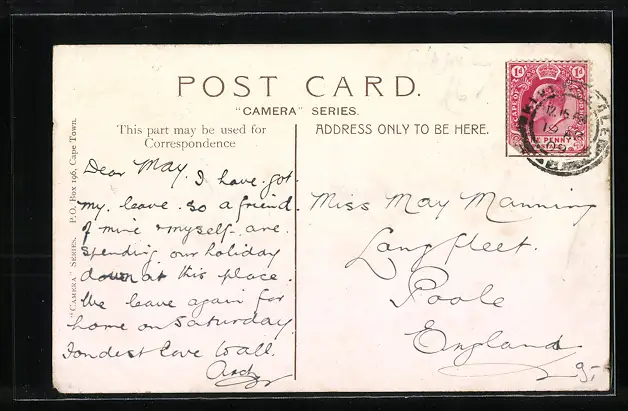 POST CARD.
"CAMERA" SERIES.
This part may be used for
Correspondence
ADDRESS ONLY TO BE HERE.
"CAMERA" SERIES. P.O. Box 196, Cape Town.
Dear May.
I have got
my leave so a friend
of mine & myself are
spending our holiday
down at this place.
We leave again for
home on Saturday
Fondest love to all.
Miss May Manning
Langfleet.
Poole
England
1d 1d